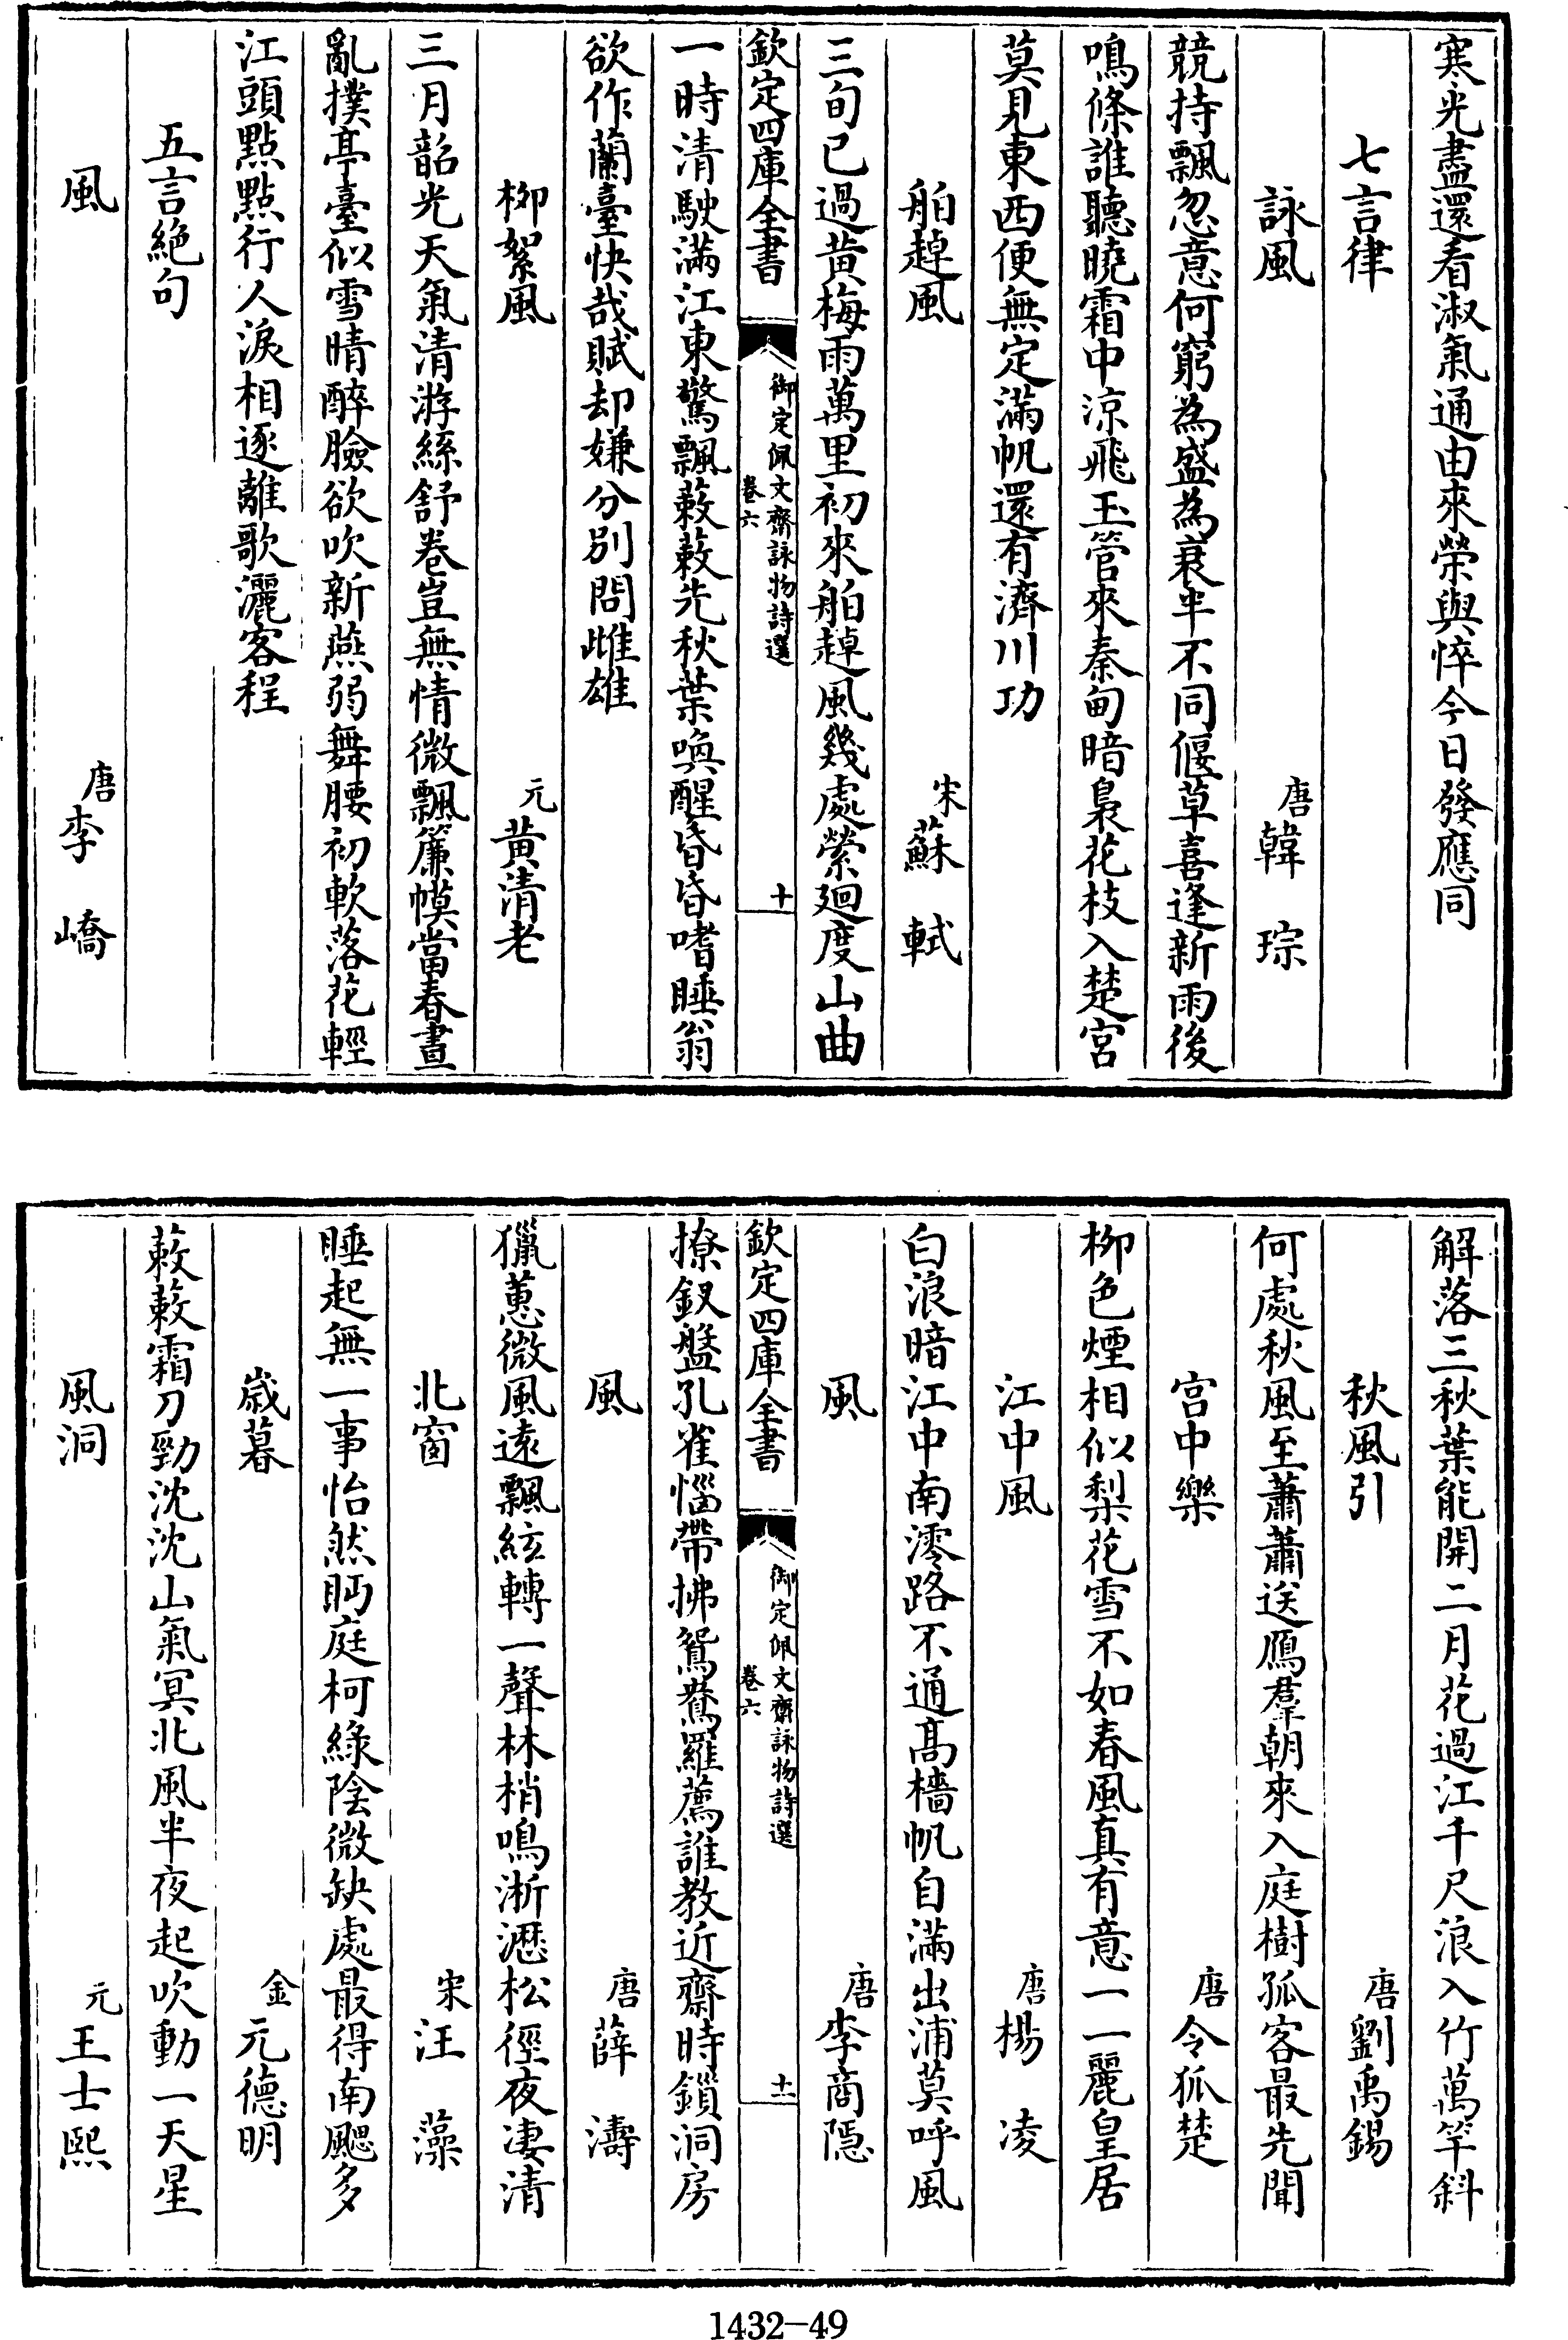 寒光盡還看淑氣通由來榮與悴今日發應同
七言律
詠風 唐韓琮
競持飄忽意何窮為盛為衰半不同偃草喜逢新雨後
鳴條誰聽曉霜中涼飛玉管來秦甸暗裊花枝入楚宮
莫見東西便無定滿帆還有濟川功
舶趠風 宋蘇軾
三旬已過黄梅雨萬里初來舶趠風幾處縈廻度山曲
欽定四庫全書 御定佩文齋詠物詩選 卷六 十
一時清駛滿江東驚飄蔌蔌先秋葉喚醒昏昏嗜睡翁
欲作蘭臺快哉賦却嫌分別問雌雄
柳絮風 元黄清老
三月韶光天氣清游絲舒卷豈無情微飄簾幙當春晝
亂撲亭臺似雪晴醉臉欲吹新燕弱舞腰初軟落花輕
江頭點點行人淚相逐離歌灑客程
五言絶句
風 唐李嶠
解落三秋葉能開二月花過江千尺浪入竹萬竿斜
秋風引 唐劉禹錫
何處秋風至蕭蕭送鴈羣朝來入庭樹孤客最先聞
宫中樂 唐令狐楚
柳色煙相似梨花雪不如春風真有意一一麗皇居
江中風 唐楊凌
白浪暗江中南澪路不通髙檣帆自滿出浦莫呼風
風 唐李商隠
欽定四庫全書 御定佩文齋詠物詩選 卷六 十一
撩釵盤孔雀惱帶拂鴛鴦羅薦誰教近齋時鎖洞房
風 唐薛濤
獵蕙微風遠飄絃轉一聲林梢鳴淅瀝松徑夜凄清
北窗 宋汪藻
睡起無一事怡然眄庭柯緑陰微缺處最得南颸多
歲暮 金元德明
蔌蔌霜刀勁沈沈山氣冥北風半夜起吹動一天星
風洞 元王士熙
1432-49